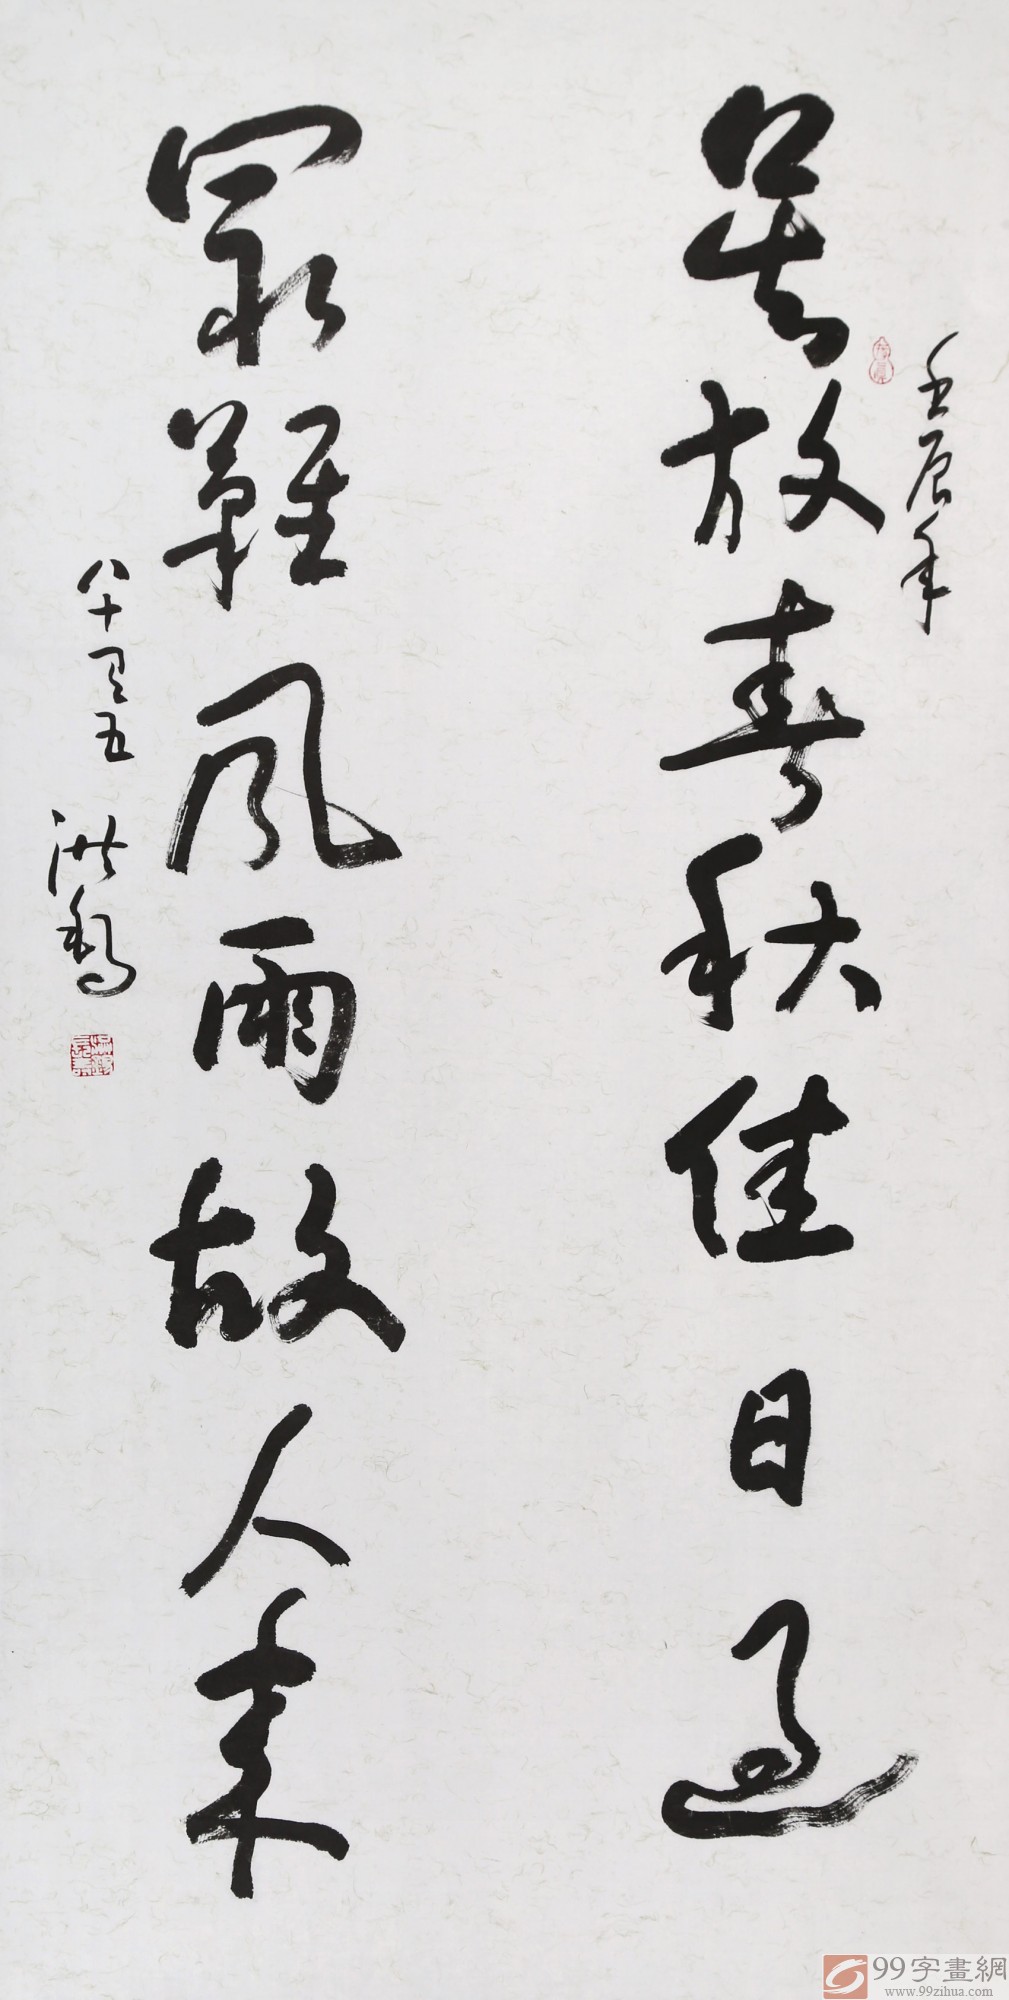 壬辰年
莫放春秋佳日過
最難風雨故人来
八十五
洪
99字畫網
www.99zihua.com